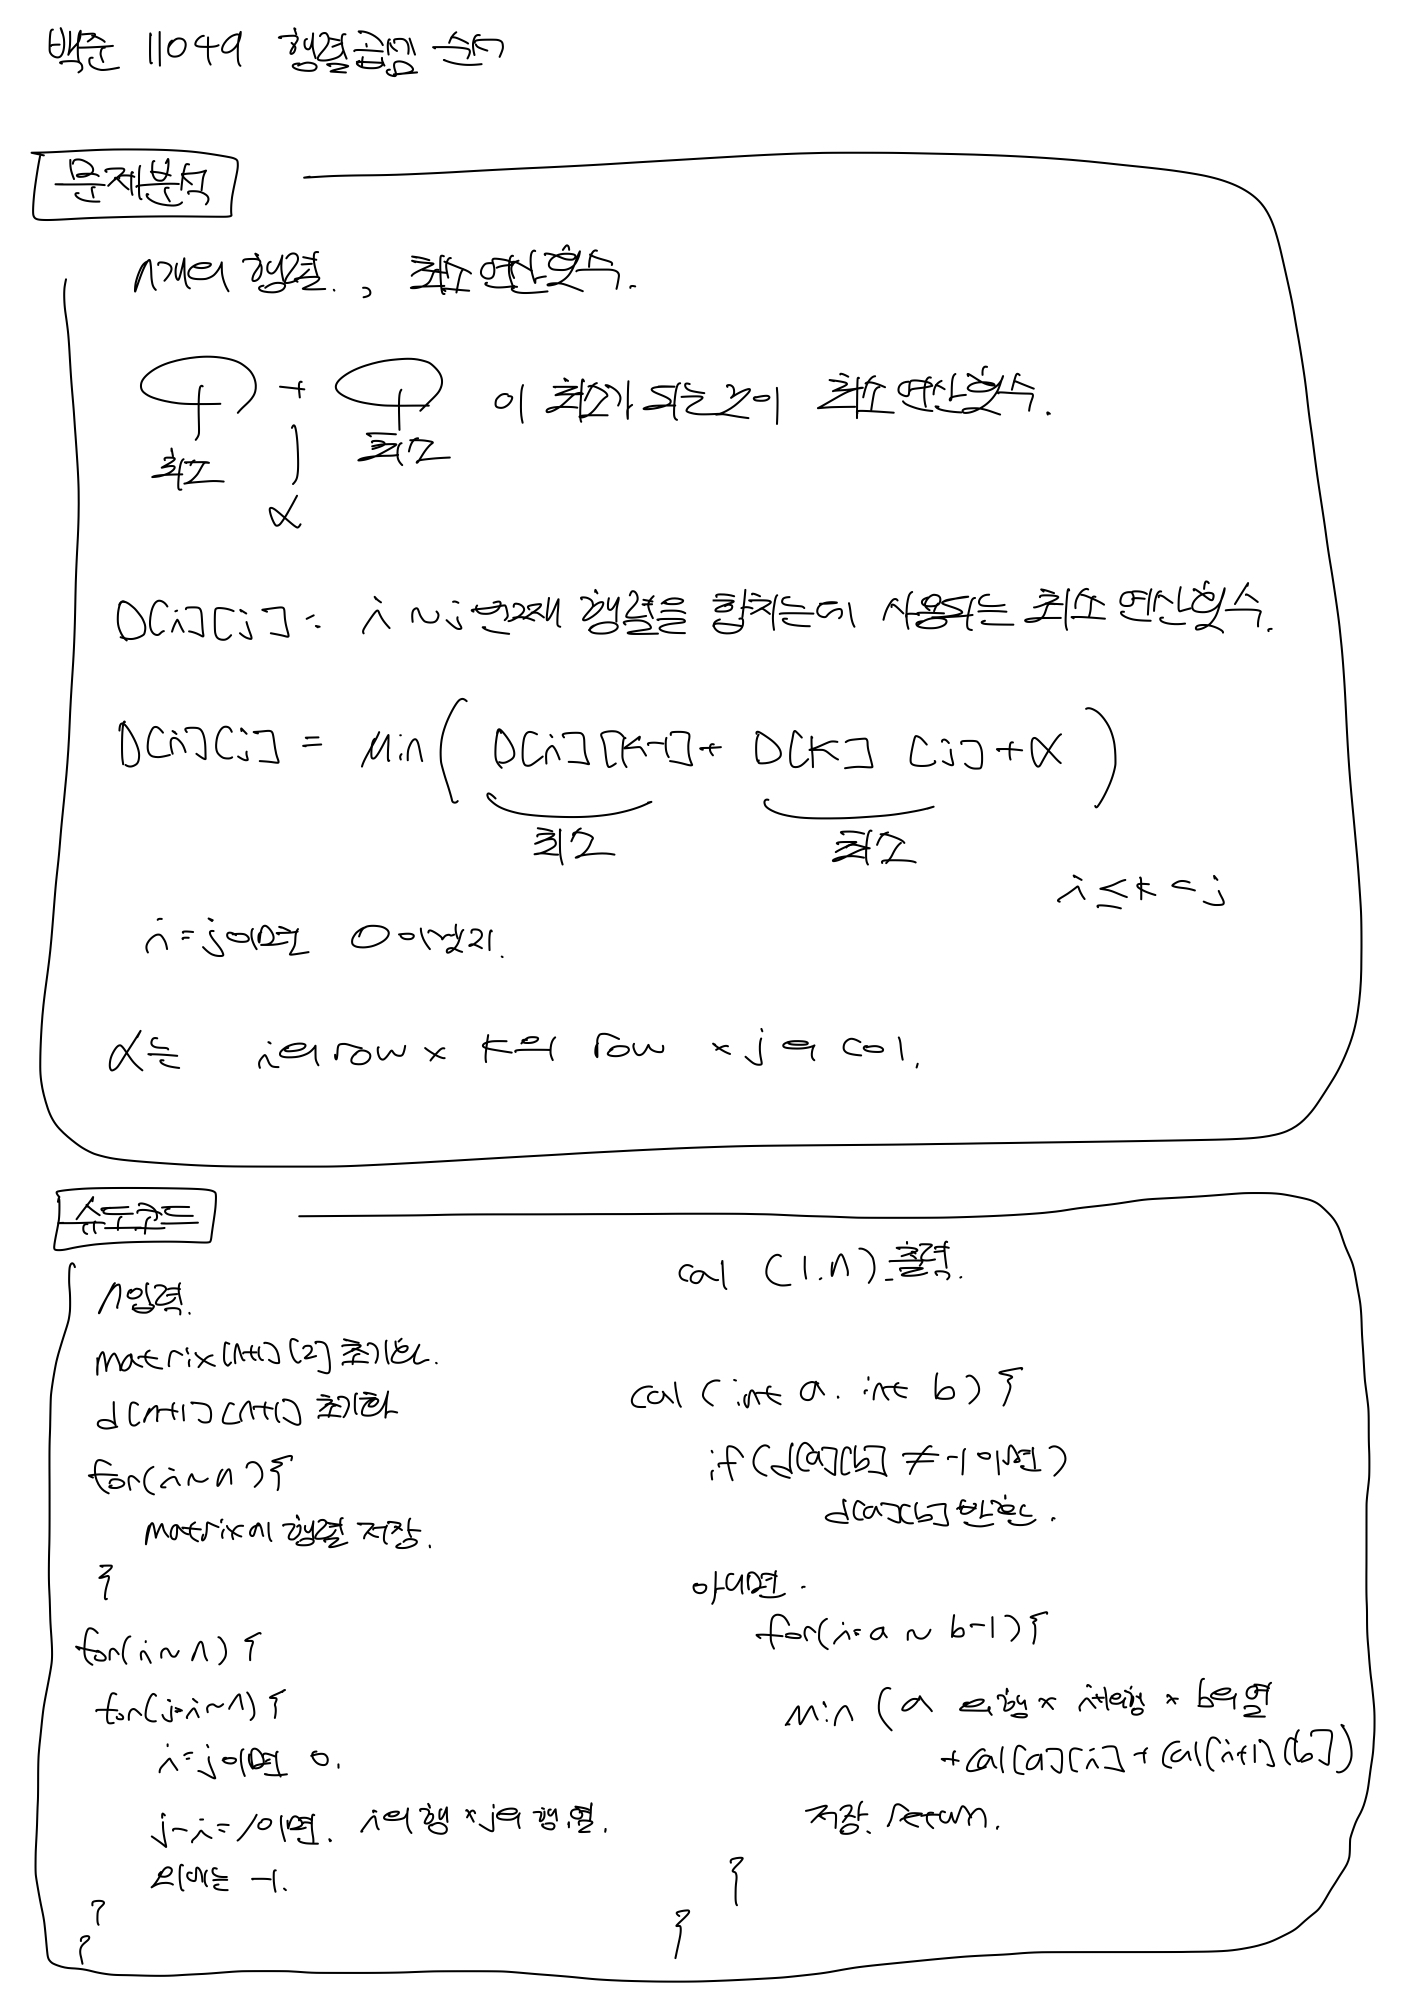 백준 11049 행렬곱셈 순서
문제분석
n개의 행렬. , 최소 연산횟수.
+ 이 최소가 되는것이 최소 연산횟수.
최소 최소
α
D[i][j] = i ~ j번째 행렬을 합치는데 사용되는 최소 연산횟수.
D[i][j] = Min( D[i][k-1] + D[k] [j] + α )
최소 최소
i ≤ k < j
i = j이면 0 이겠지.
α는 i의 row × k의 row × j의 col.
슈도코드
n입력.
matrix[n+1][2] 초기화.
d[n+1][n+1] 초기화
for(i~n){
matrix에 행렬 저장.
}
for(i~n){
for(j=i~n){
i=j이면 0.
j-i=1이면. i의 행 × j의 행.열.
외에는 -1.
}
}
cal (1.n) 출력.
cal (int a. int b) {
if(d[a][b] ≠ -1 이면)
d[a][b] 반환.
아니면.
for(i=a ~ b-1){
min (a 의행 × i+1의행 × b의열
+ cal[a][i] + cal[i+1][b])
저장. return.
}
}